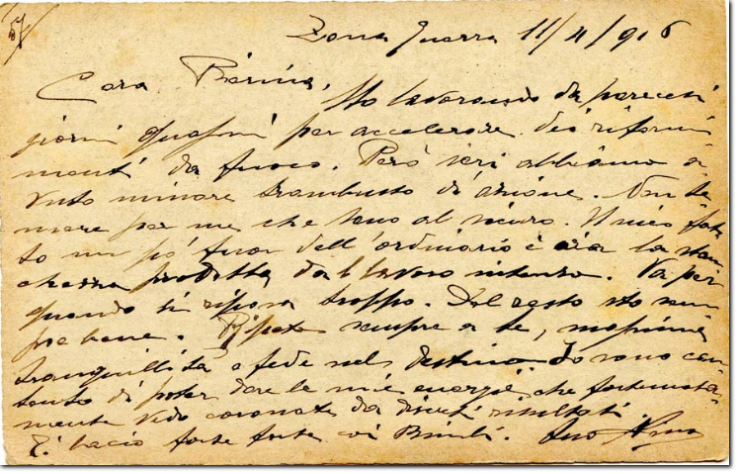 57
Zona Guerra 11/4/916
Cara
Sto lavorando da parecchi
giorni quassù per accelerare dei riforni
menti da fuoco. Però ieri abbiamo a
vuto minore trambusto di azione. Non te
mere per me che sono al sicuro. Il mio
to un po' fuor dell'ordinario è ora la stan
chezza prodotta dal lavoro intenso. Va per
quando si riposa troppo. Del resto sto sem
pre bene. Ripeto sempre a te, massima
tranquillità e fede nel destino. Io sono con
tento di poter dare le mie energie, che fortunata
mente vedo coronate da discreti risultati.
Ti bacio forte forte coi Bimbi. tuo